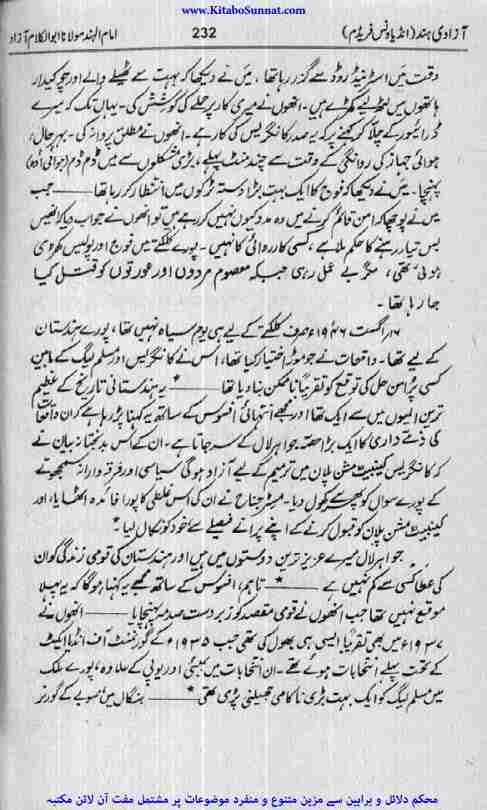 www.KitaboSunnat.com
آزادی ہند (انڈیا ونس فریڈم) 232 امام الہند مولانا ابوالکلام آزاد
وقت میں اسٹرینڈ روڈ سے گزر رہا تھا، میں نے دیکھا کہ بہت سے ٹھیلے والے اور چوکیدار
ہاتھوں میں لٹھ لیے کھڑے ہیں۔ انھوں نے میری کار پر حملے کی کوشش کی۔ یہاں تک کہ میرے
ڈرائیور کے چلا کر کہنے پر کہ یہ صدر کانگریس کی کار ہے۔ انھوں نے مطلق پروا نہ کی۔ بہرحال،
ہوائی جہاز کی روانگی کے وقت سے چند منٹ پہلے، بڑی مشکلوں سے میں ڈم ڈم (ہوائی اڈہ)
پہنچا۔ میں نے دیکھا کہ فوج کا ایک بہت بڑا دستہ ٹرکوں میں انتظار کر رہا تھا ــــ جب
میں نے پوچھا کہ امن قائم کرنے میں وہ مدد کیوں نہیں کر رہے ہیں تو انھوں نے جواب دیا کہ انھیں
بس تیار رہنے کا حکم ملا ہے، کسی کارروائی کا نہیں۔ پورے کلکتے میں فوج اور پولیس کھڑی
ہوئی تھی، مگر بے عمل رہی جبکہ معصوم مردوں اور عورتوں کو قتل کیا
جا رہا تھا۔
۱۶؍ اگست ۱۹۴۶ء صرف کلکتے کے لیے ہی یوم سیاہ نہیں تھا، پورے ہندستان
کے لیے تھا۔ واقعات نے جو موڑ اختیار کیا تھا، اُس نے کانگریس اور مسلم لیگ کے مابین
کسی پُرامن حل کی توقع کو تقریباً ناممکن بنا دیا تھا ــــ * یہ ہندستانی تاریخ کے عظیم
ترین المیوں میں سے ایک تھا اور مجھے انتہائی افسوس کے ساتھ یہ کہنا پڑ رہا ہے کہ ان واقعات
کی ذمے داری کا ایک بڑا حصّہ جواہر لال کے سر جاتا ہے۔ ان کے اس بدبختانہ بیان نے
کہ کانگریس کیبنیٹ مشن پلان میں ترمیم کے لیے آزاد ہوگی سیاسی اور فرقہ وارانہ سمجھوتے
کے پورے سوال کو پھر سے کھول دیا۔ مسٹر جناح نے ان کی اس غلطی کا پورا فائدہ اٹھایا، اور
کیبنیٹ مشن پلان کو قبول کرنے کے اپنے پرانے فیصلے سے خود کو نکال لیا *
جواہر لال میرے عزیز ترین دوستوں میں ہیں اور ہندستان کی قومی زندگی کو ان
کی عطا کسی سے کم نہیں ہے ــــ * تاہم، افسوس کے ساتھ مجھے یہ کہنا ہوگا کہ یہ پہلا
موقع نہیں تھا جب انھوں نے قومی مقصد کو زبردست صدمہ پہنچایا ــــ انھوں نے
۱۹۳۷ء میں بھی تقریباً ایسی ہی بھول کی تھی جب ۱۹۳۵ء کے گورنمنٹ آف انڈیا ایکٹ
کے تحت پہلے انتخابات ہوئے تھے۔ ان انتخابات میں بمبئی اور یوپی کے علاوہ، پورے ملک
میں مسلم لیگ کو ایک بہت بڑی ناکامی جھیلنی پڑی تھی * ــــ بنگال میں صوبے کے گورنر
محکم دلائل و براہین سے مزین متنوع و منفرد موضوعات پر مشتمل مفت آن لائن مکتبہ